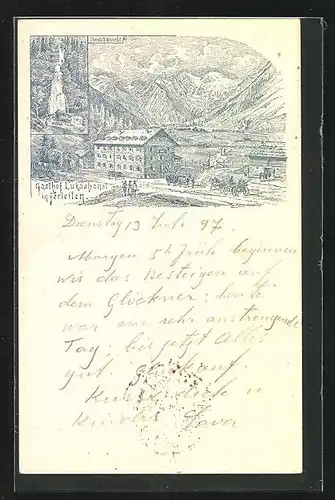 Gasthof Lukashansl
in Ferleiten.
Dienstag 13 Juli 97.
Morgen 5h früh beginnen
wir das Besteigen auf
dem Glöckner; heute
war ein sehr anstrengender
Tag; bis jetzt Alles
gut. Glückauf.
Kuss Dich u
Kinder